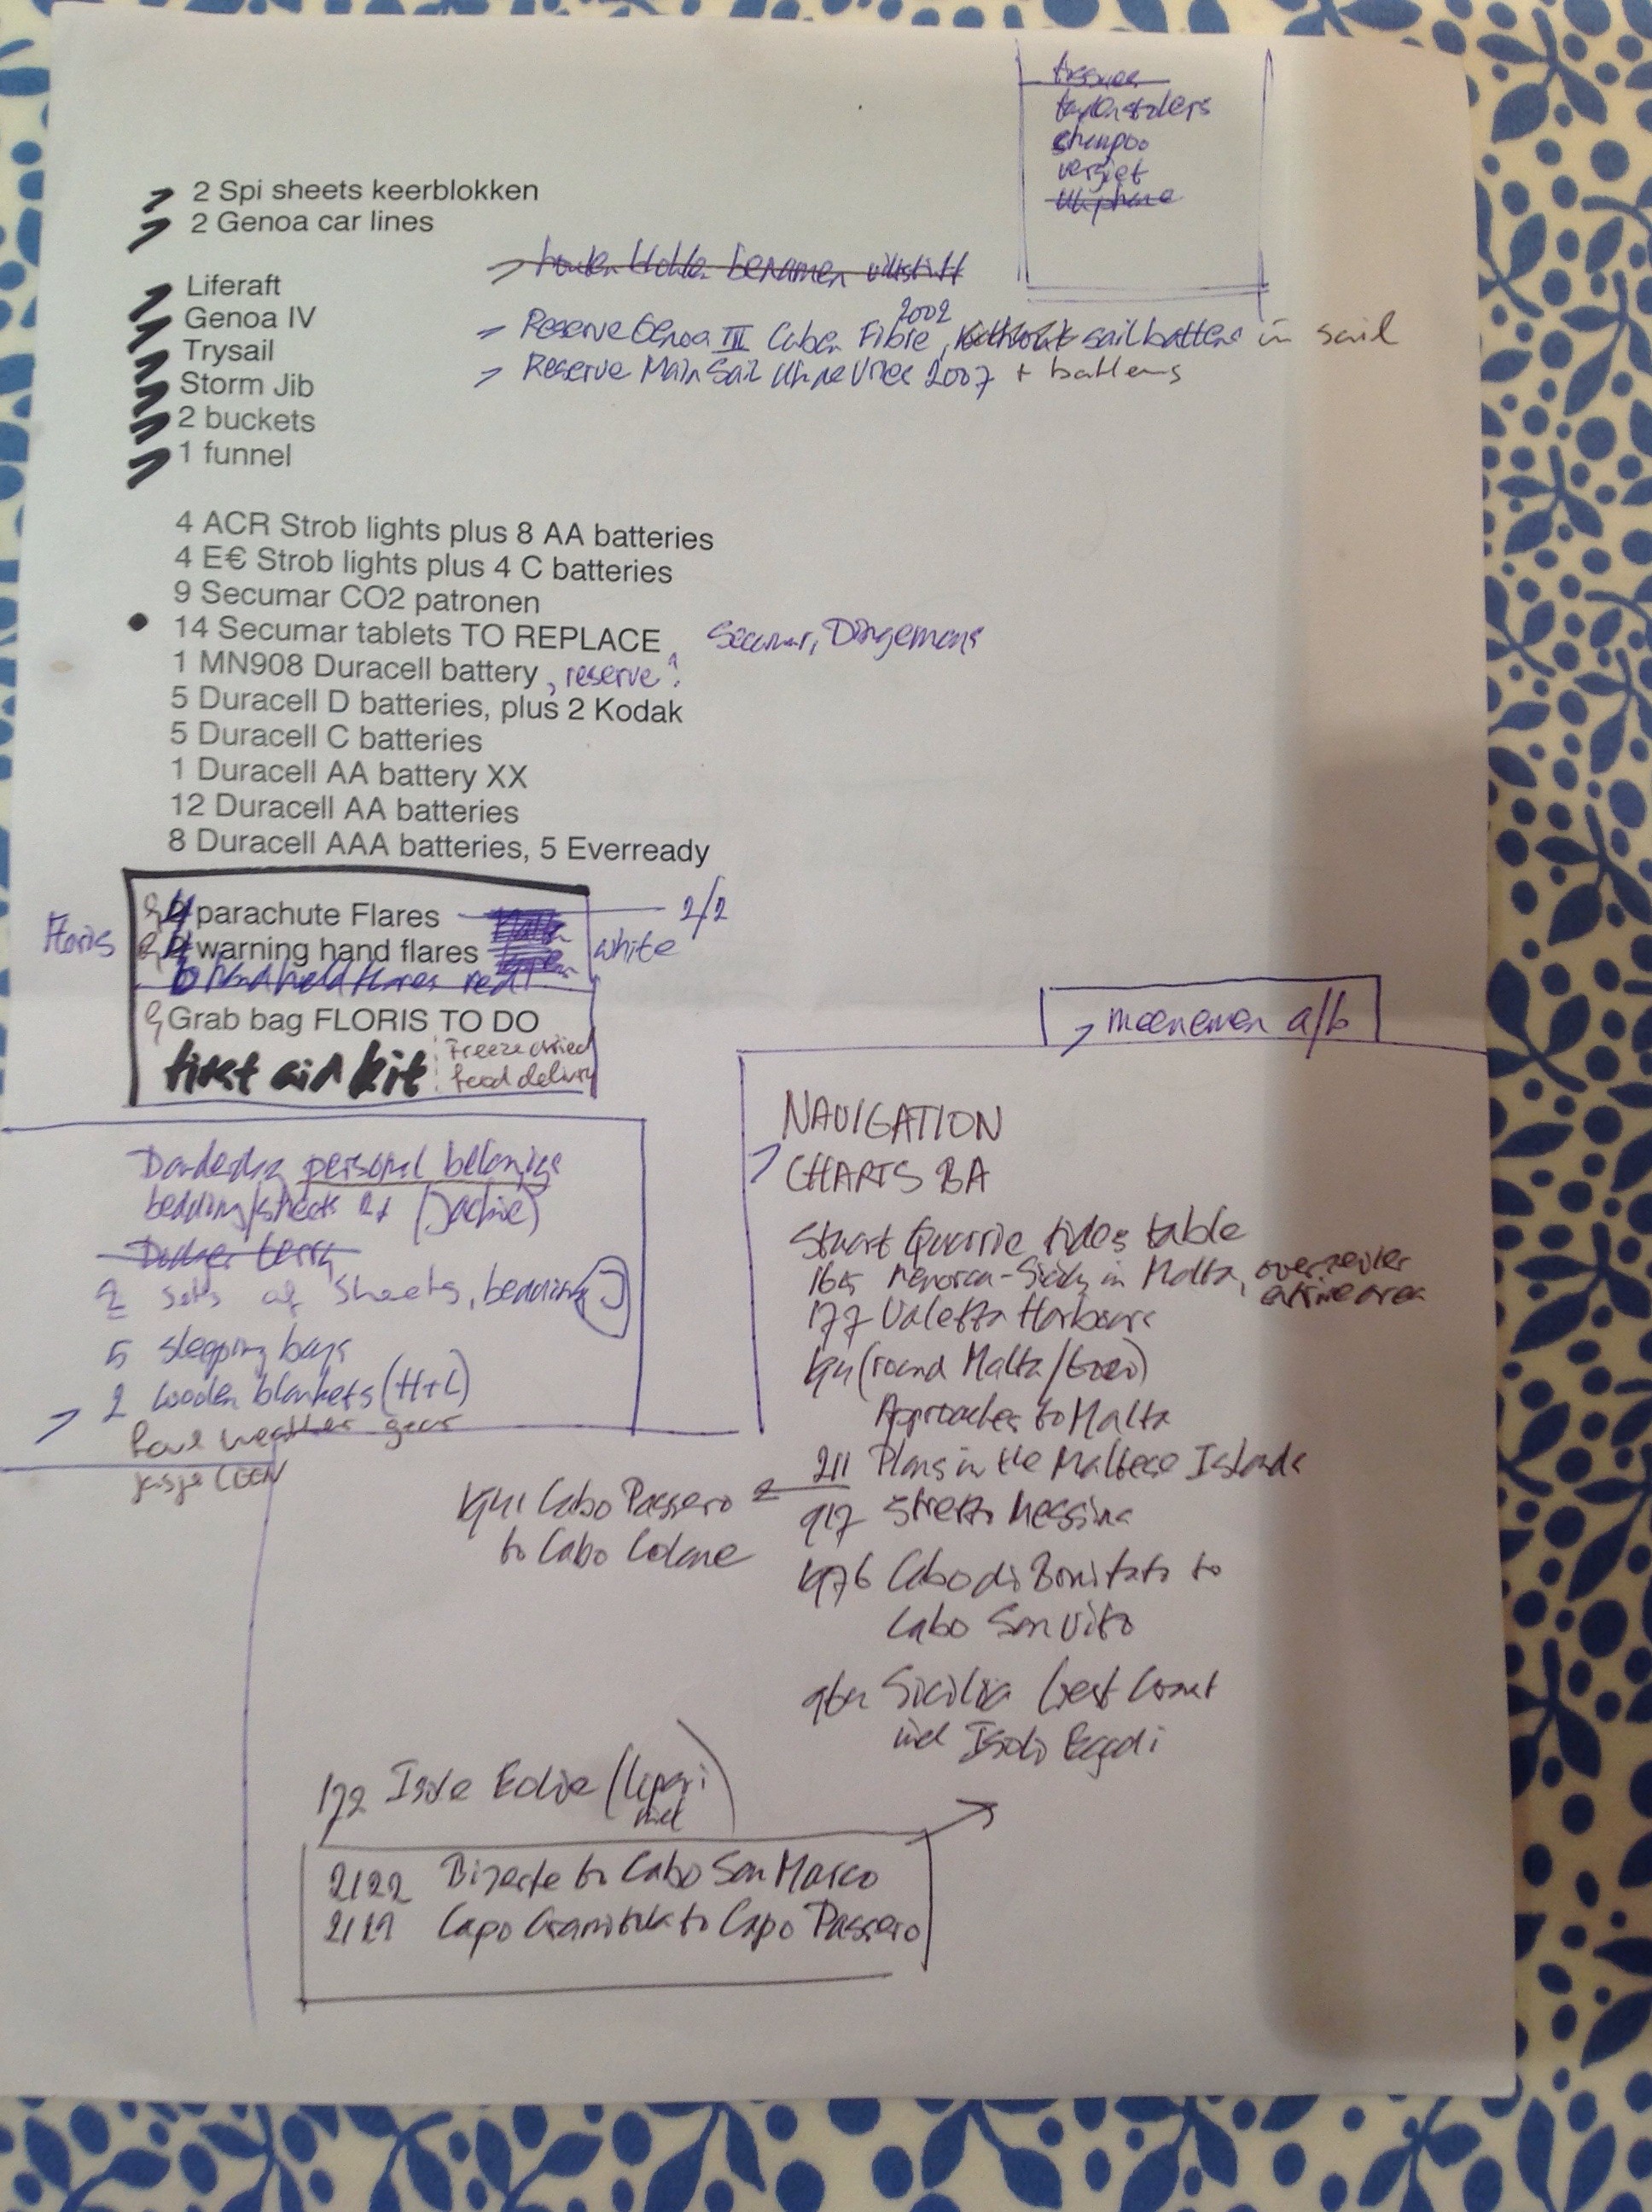 tissues
shampoo
2 Spi sheets keerblokken
2 Genoa car lines
benamen viltstift
Liferaft
Genoa IV
Trysail
Storm Jib
2 buckets
1 funnel
2002
Reserve Genoa III Fibre, sail battens in sail
Reserve Main Sail 2007 + battens
4 ACR Strob lights plus 8 AA batteries
4 E€ Strob lights plus 4 C batteries
9 Secumar CO2 patronen
14 Secumar tablets TO REPLACE Secumar, Dingemans
1 MN908 Duracell battery, reserve?
5 Duracell D batteries, plus 2 Kodak
5 Duracell C batteries
1 Duracell AA battery XX
12 Duracell AA batteries
8 Duracell AAA batteries, 5 Everready
4 parachute Flares 2/2
Floris
warning hand flares white
6 handheld flares red
Grab bag FLORIS TO DO
first aid kit
Freeze dried
food delivery
meenemen a/b
NAVIGATION
CHARTS BA
Stuart Quarrie tides table
165 Menorca-Sicily in Malta, overzeiler
entire area
177 Valetta Harbours
194 (round Malta/Gozo)
Approaches to Malta
211 Plans in the Maltese Islands
917 Stretto Messina
1976 Cabo di Bonifati to
Cabo San Vito
964 Sicilia West Coast
incl Isole Egadi
Donderdag personal belongings
bedding/sheets 2x (Jackie)
2 sets of sheets, bedding J
5 sleeping bags
2 woolen blankets (H+L)
foul weather gear
jasje COEN
1941 Cabo Passero
to Cabo Colone
172 Isole Eolie (Lipari
incl)
2122 Bizerte to Cabo San Marco
Capo Passero